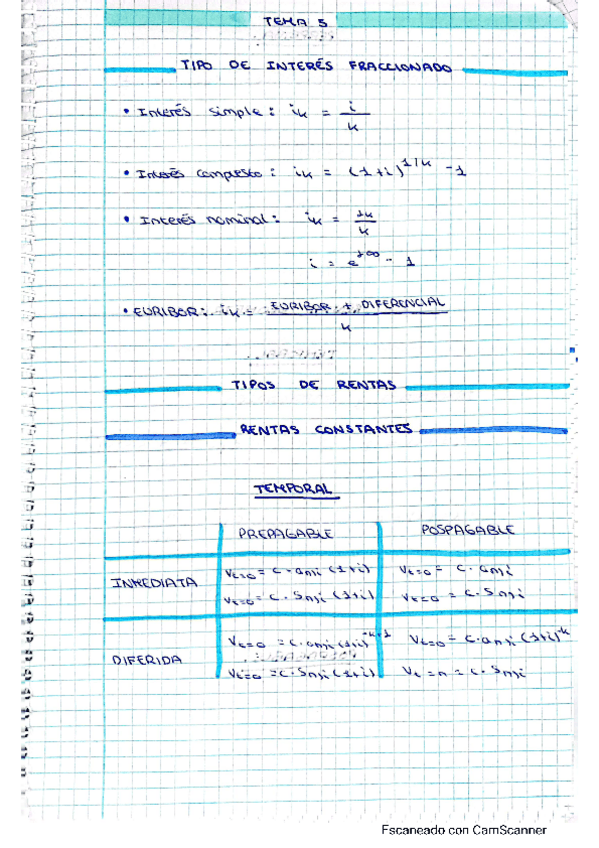 TEMA 5
TIPO DE INTERÉS FRACCIONADO
• Interés simple: ik = i / k
• Interés compuesto: ik = (1+i)^1/k - 1
• Interés nominal: ik = Jk / k
i = e^J∞ - 1
• EURIBOR: ik = EURIBOR + DIFERENCIAL / k
TIPOS DE RENTAS
RENTAS CONSTANTES
TEMPORAL
PREPAGABLE POSPAGABLE
INMEDIATA
Vt=0 = C · an⌉i (1+i) Vt=0 = C · an⌉i
Vt=0 = C · Sn⌉i (1+i) Vt=0 = C · Sn⌉i
DIFERIDA
Vt=0 = C · an⌉i (1+i)^-k+1 Vt=0 = C · an⌉i (1+i)^-k
Vt=0 = C · Sn⌉i (1+i) Vt=n = C · Sn⌉i
Escaneado con CamScanner